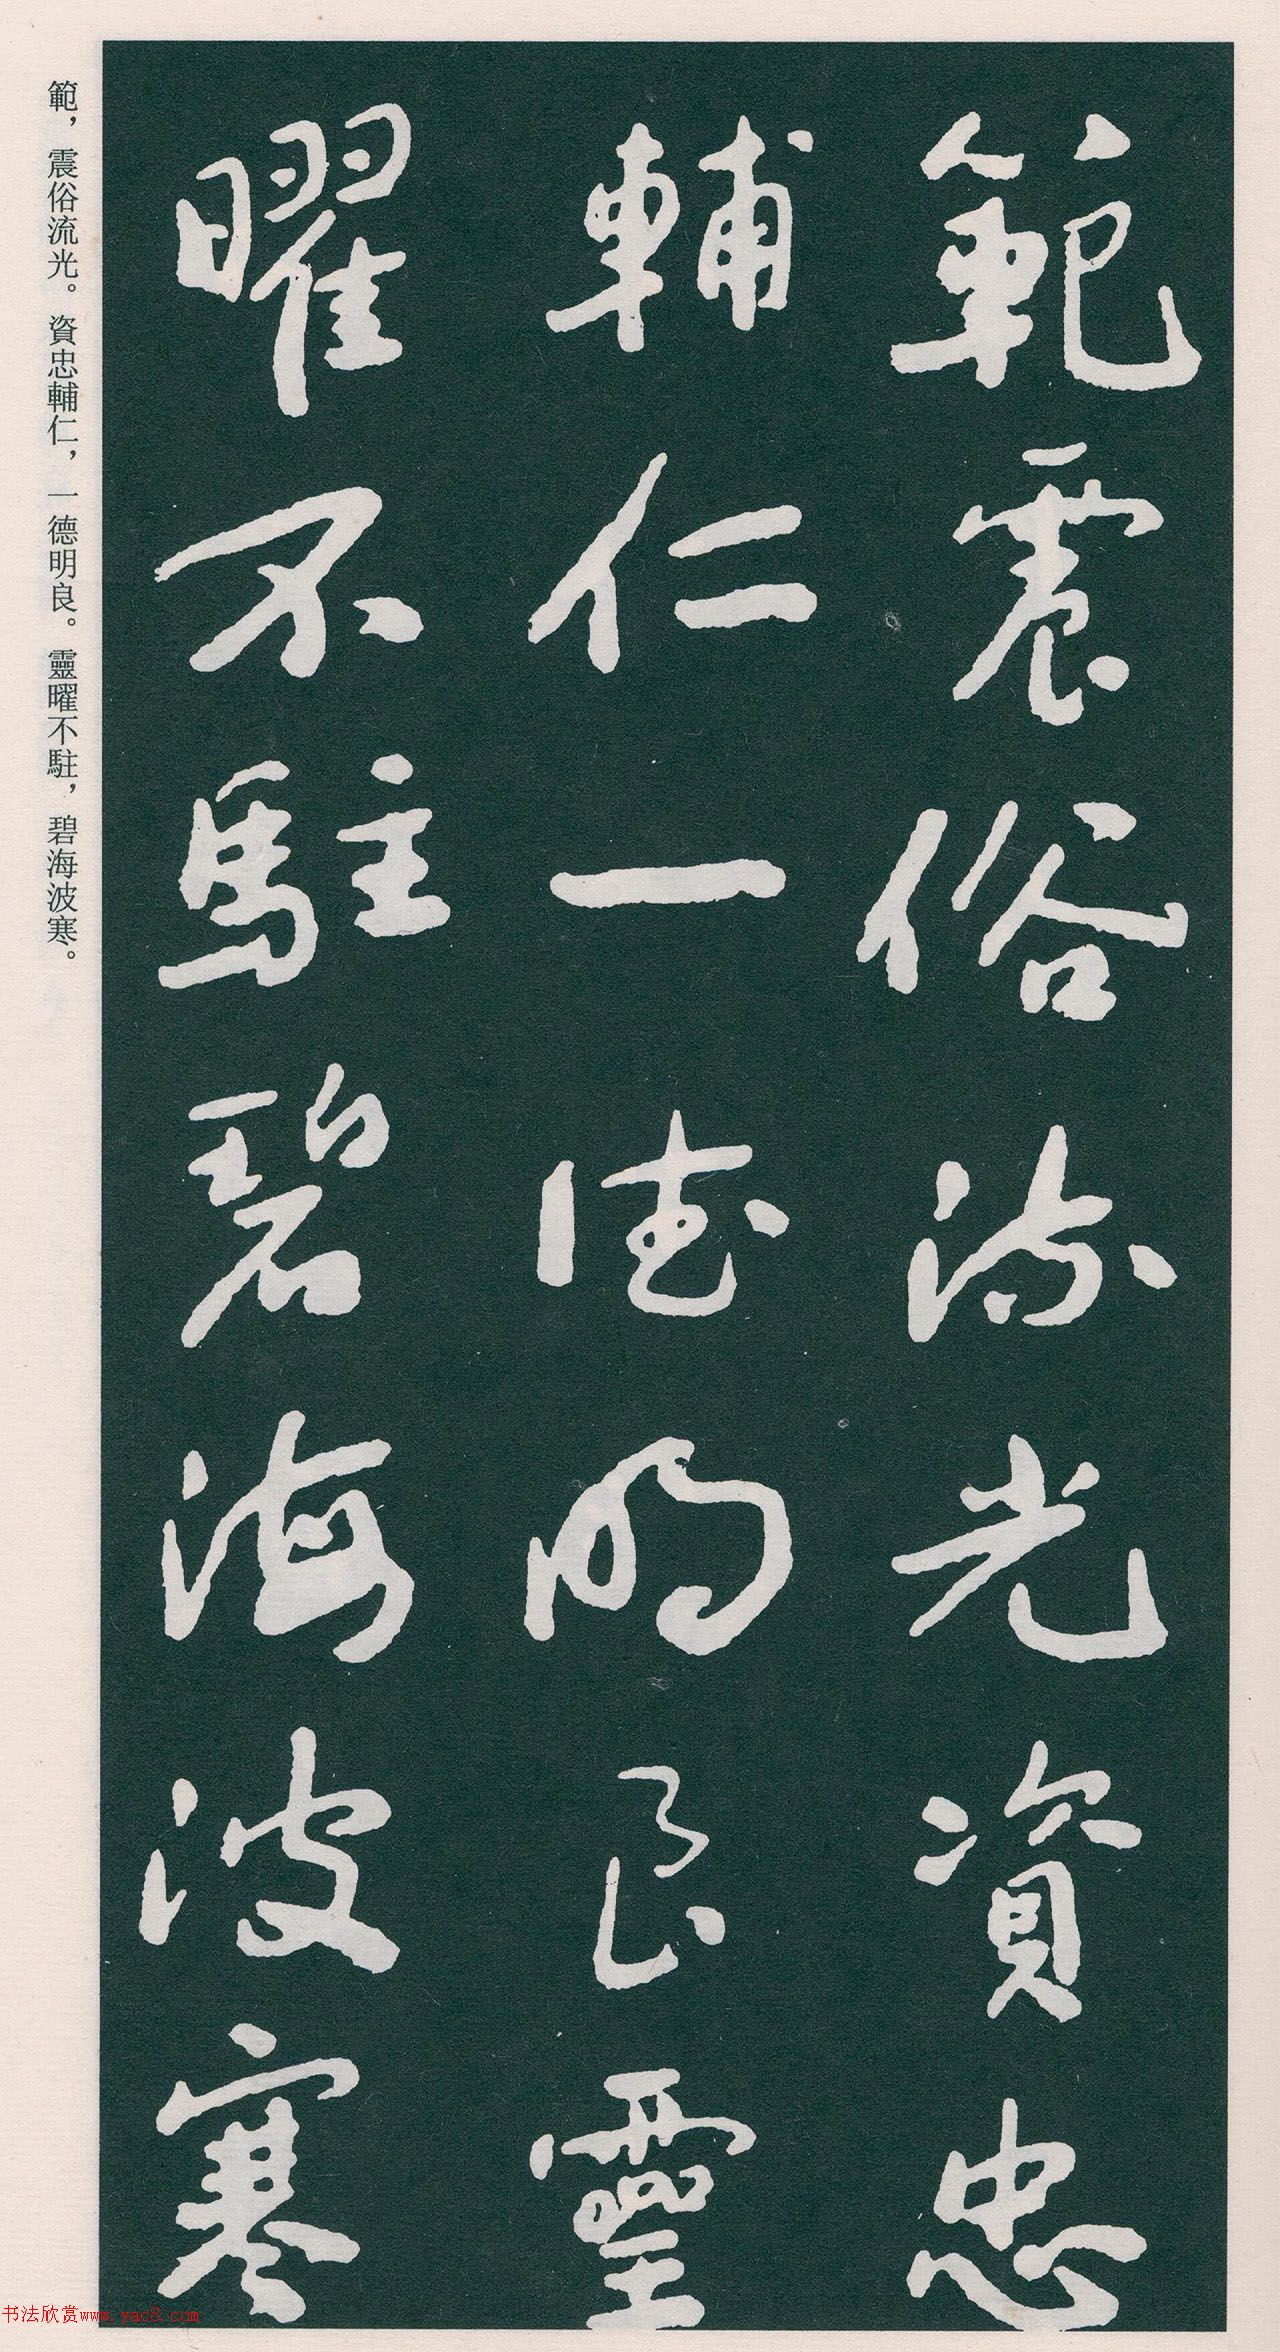 範震俗流光資忠
輔仁一德明良靈
曜不駐碧海波寒
範，震俗流光。資忠輔仁，一德明良。靈曜不駐，碧海波寒。
书法欣赏www.yac8.com